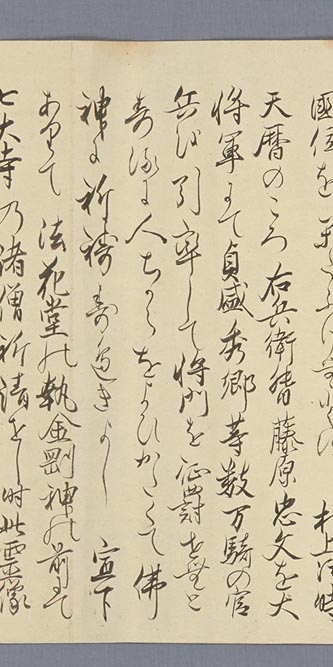 國位を
天暦のころ右兵衛督藤原忠文を大
将軍にて貞盛秀郷等数万騎の官
兵を引率して将門を征罸せむと
するに人ちからをよひかたくて佛
神に祈祷すへきよし 宣下
ありて 法花堂の執金剛神の前にて
七大寺乃諸僧祈請をし時此霊像